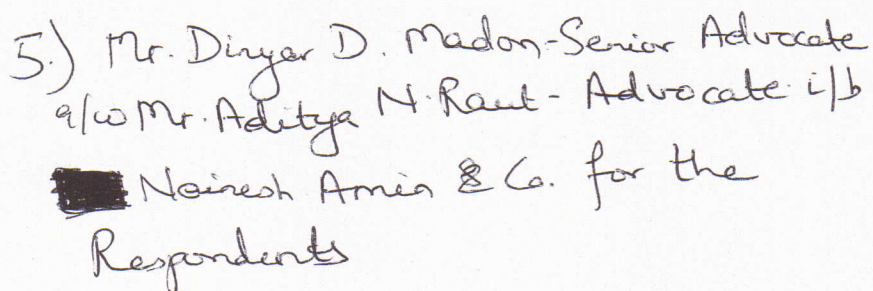 5.) Mr. Dinyar D. Madon-Senior Advocate
a/w Mr. Aditya N. Raut - Advocate i/b
Nainesh Amin & Co. for the
Respondents